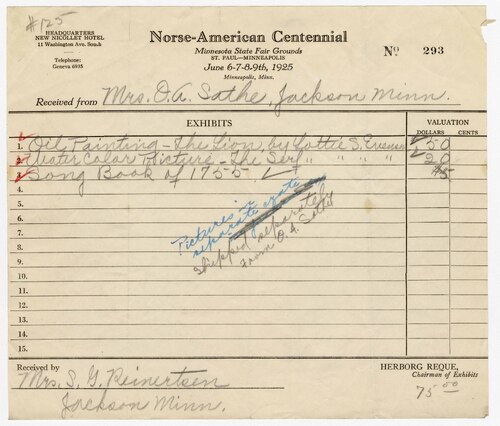 #125
HEADQUARTERS
NEW NICOLLET HOTEL
11 Washington Ave. South
Telephone:
Geneva 6935
Norse-American Centennial
Minnesota State Fair Grounds
ST. PAUL—MINNEAPOLIS
June 6-7-8-9th, 1925
Minneapolis, Minn.
No 293
Received from Mrs. O. A. Sathe, Jackson Minn.
EXHIBITS
VALUATION
DOLLARS CENTS
1. Oil Painting - The Lion, by Lottie S. 50
2. Water Color Picture - The Serf " " " " 20
3. Song Book of 1755 $5
4.
5.
6.
7.
8.
9.
10.
11.
12.
13.
14.
15.
Pictures in
separate crate
Shipped separately
from O. A. Sathe
Received by
Mrs. S. G. Reinertsen
Jackson Minn.
HERBORG REQUE,
Chairman of Exhibits
75 00